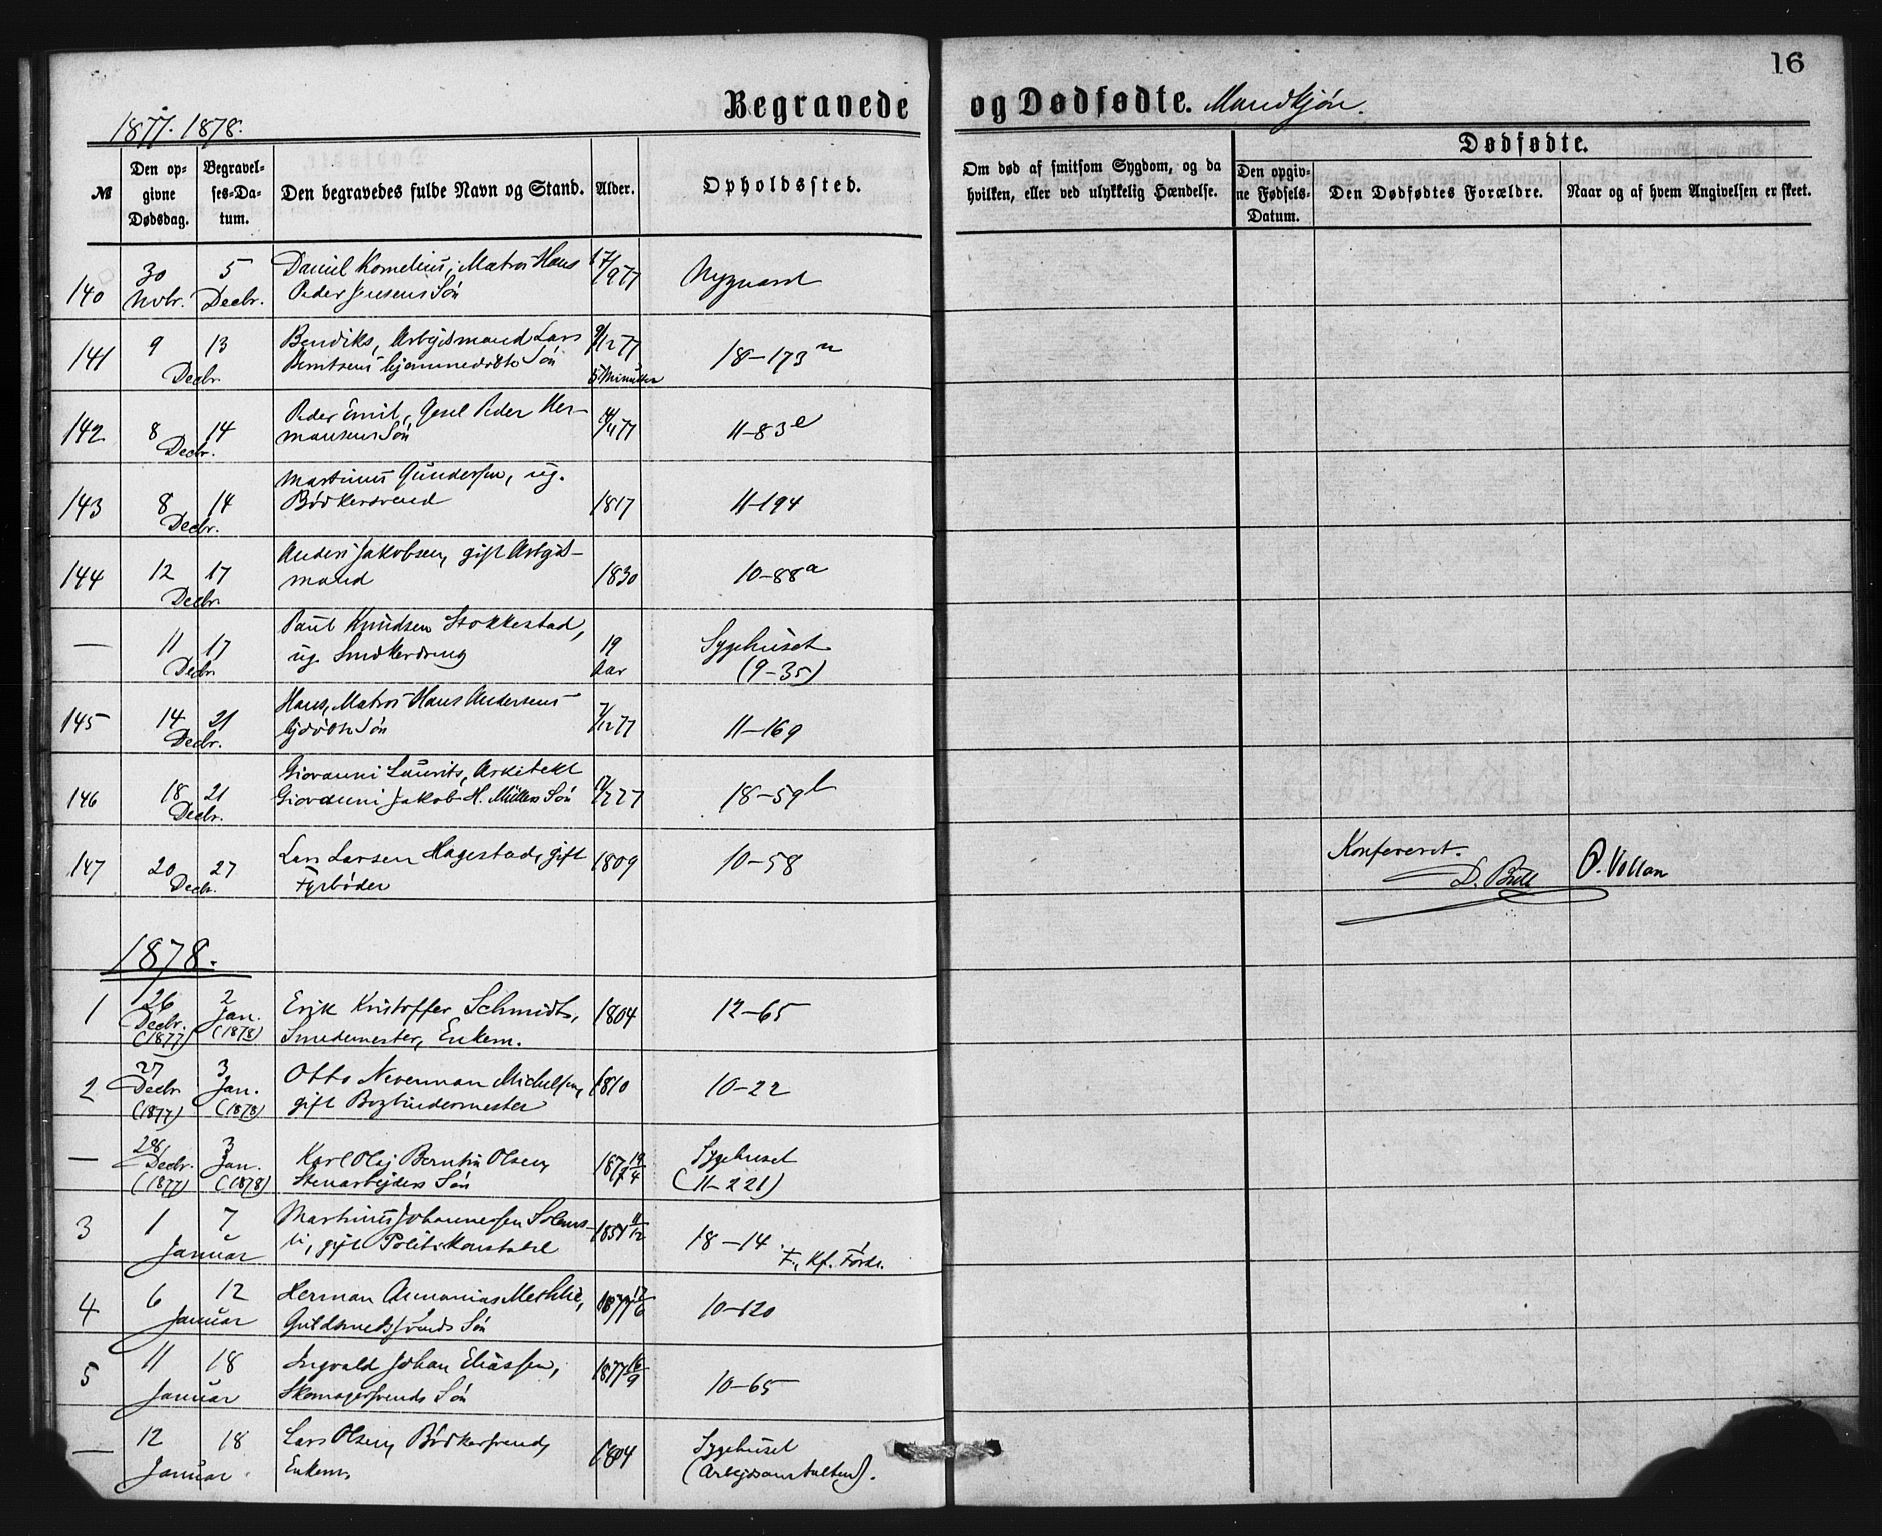 16
Begravede og Dødfødte. Mandkjøn.
1877. 1878.
№
Den op-
givne
Dødsdag.
Begravel-
ses-Da-
tum.
Den begravedes fulde Navn og Stand.
Alder.
Opholdssted.
Om død af smitsom Sygdom, og da
hvilken, eller ved ulykkelig Hændelse.
Dødfødte.
Den opgiv-
ne Fødsels-
Datum.
Den Dødfødtes Forældre.
Naar og af hvem Angivelsen er skeet.
140 30 Novbr. 5 Decbr. Daniel Kornelius, Matros Hans
Peder Jensens Søn 17/9 77 Nygaard
141 9 13 Decbr. Bendiks, Arbejdsmand Lars
Berntsens hjemmedøbte Søn 9/12 77 5 Minutter 18-173 n
142 8 14 Decbr. Peder Emil, Gesel Peder Her-
mansens Søn 14/11 77 11-83 e
143 8 14 Decbr. Martinus Gundersen, ug.
Bødkersvend 1817 11-194
144 12 17 Decbr. Anders Jakobsen, gift Arbejds-
mand 1830 10-88 a
— 11 17 Decbr. Paul Knudsen Stokkestad,
ug. Snedkerdreng 19 Aar Sygehuset
(9-35)
145 14 21 Decbr. Hans, Matros Hans Andersens
hjdøbte Søn 7/12 77 11-169
146 18 21 Decbr. Giovanni Laurits, Arkitekt
Giovanni Jakob H. Müllers Søn 18-59 b
147 20 27 Decbr. Lars Larsen Hagestad, gift
Fyrbøder 1809 10-58
Konfereret.
D. Bull O. Vollan
1878.
1 26 Decbr. (1877) 2 Jan. (1878) Erik Kristoffer Schmidt,
Smedemester, Enkem. 1804 12-65
2 27 Decbr (1877) 3 Jan. (1878) Otto Neverman Michelsen,
gift Bogbindermester 1810 10-22
— 28 Decbr. (1877) 3 Jan. (1878) Karl Olaj Berntin Olsen,
Stenarbejders Søn 19/4 Sygehuset
(11-221)
3 1 7 Januar Martinus Johannessen Solems-
li, gift Politikonstabel 1851 11/12 18-14 F., Kf. Førde.
4 6 12 Januar Herman Ammonias Methlie,
Guldsmedsvends Søn 1877 10-120
5 11 18 Januar Ingvald Johan Eliassen,
Skomagersvends Søn 1877 16/9 10-65
— 12 18 Januar. Lars Olsen, Bødkersvend,
Enkem. 1804 Sygehuset
(Arbejdsanstalten).